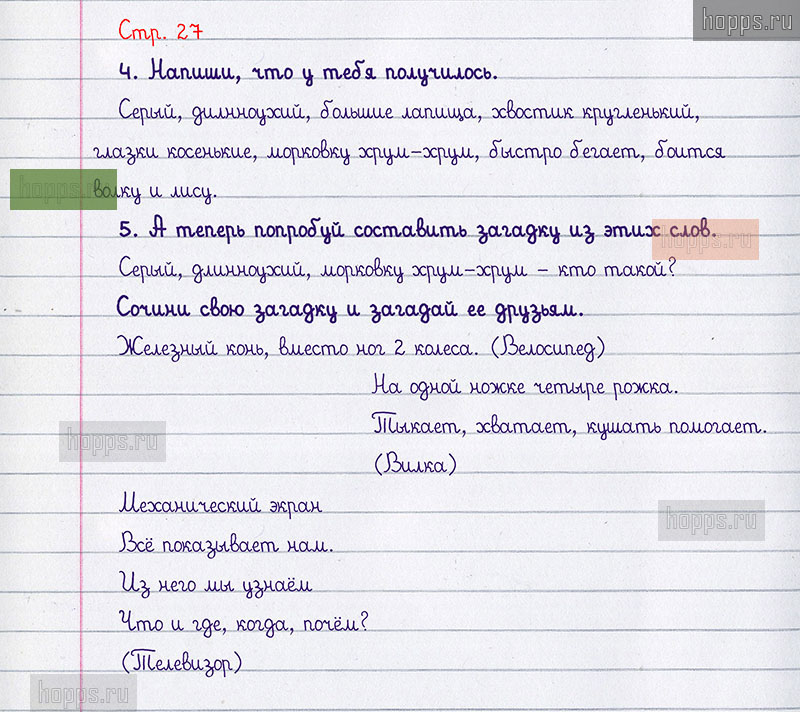 hopps.ru
Стр. 27
4. Напиши, что у тебя получилось.
Серый, дилнноухий, большие лапища, хвостик кругленький,
глазки косенькие, морковку хрум-хрум, быстро бегает, боится
волку и лису.
hopps.ru
5. А теперь попробуй составить загадку из этих слов.
hopps.ru
Серый, длинноухий, морковку хрум-хрум - кто такой?
Сочини свою загадку и загадай ее друзьям.
Железный конь, вместо ног 2 колеса. (Велосипед)
На одной ножке четыре рожка.
Тыкает, хватает, кушать помогает.
hopps.ru
(Вилка)
Механический экран
hopps.ru
Всё показывает нам.
Из него мы узнаём
Что и где, когда, почём?
(Телевизор)
hopps.ru